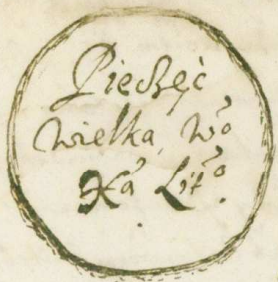 Pieczęć
wielka, Wᵒ
Xᵃ Litᵒ.